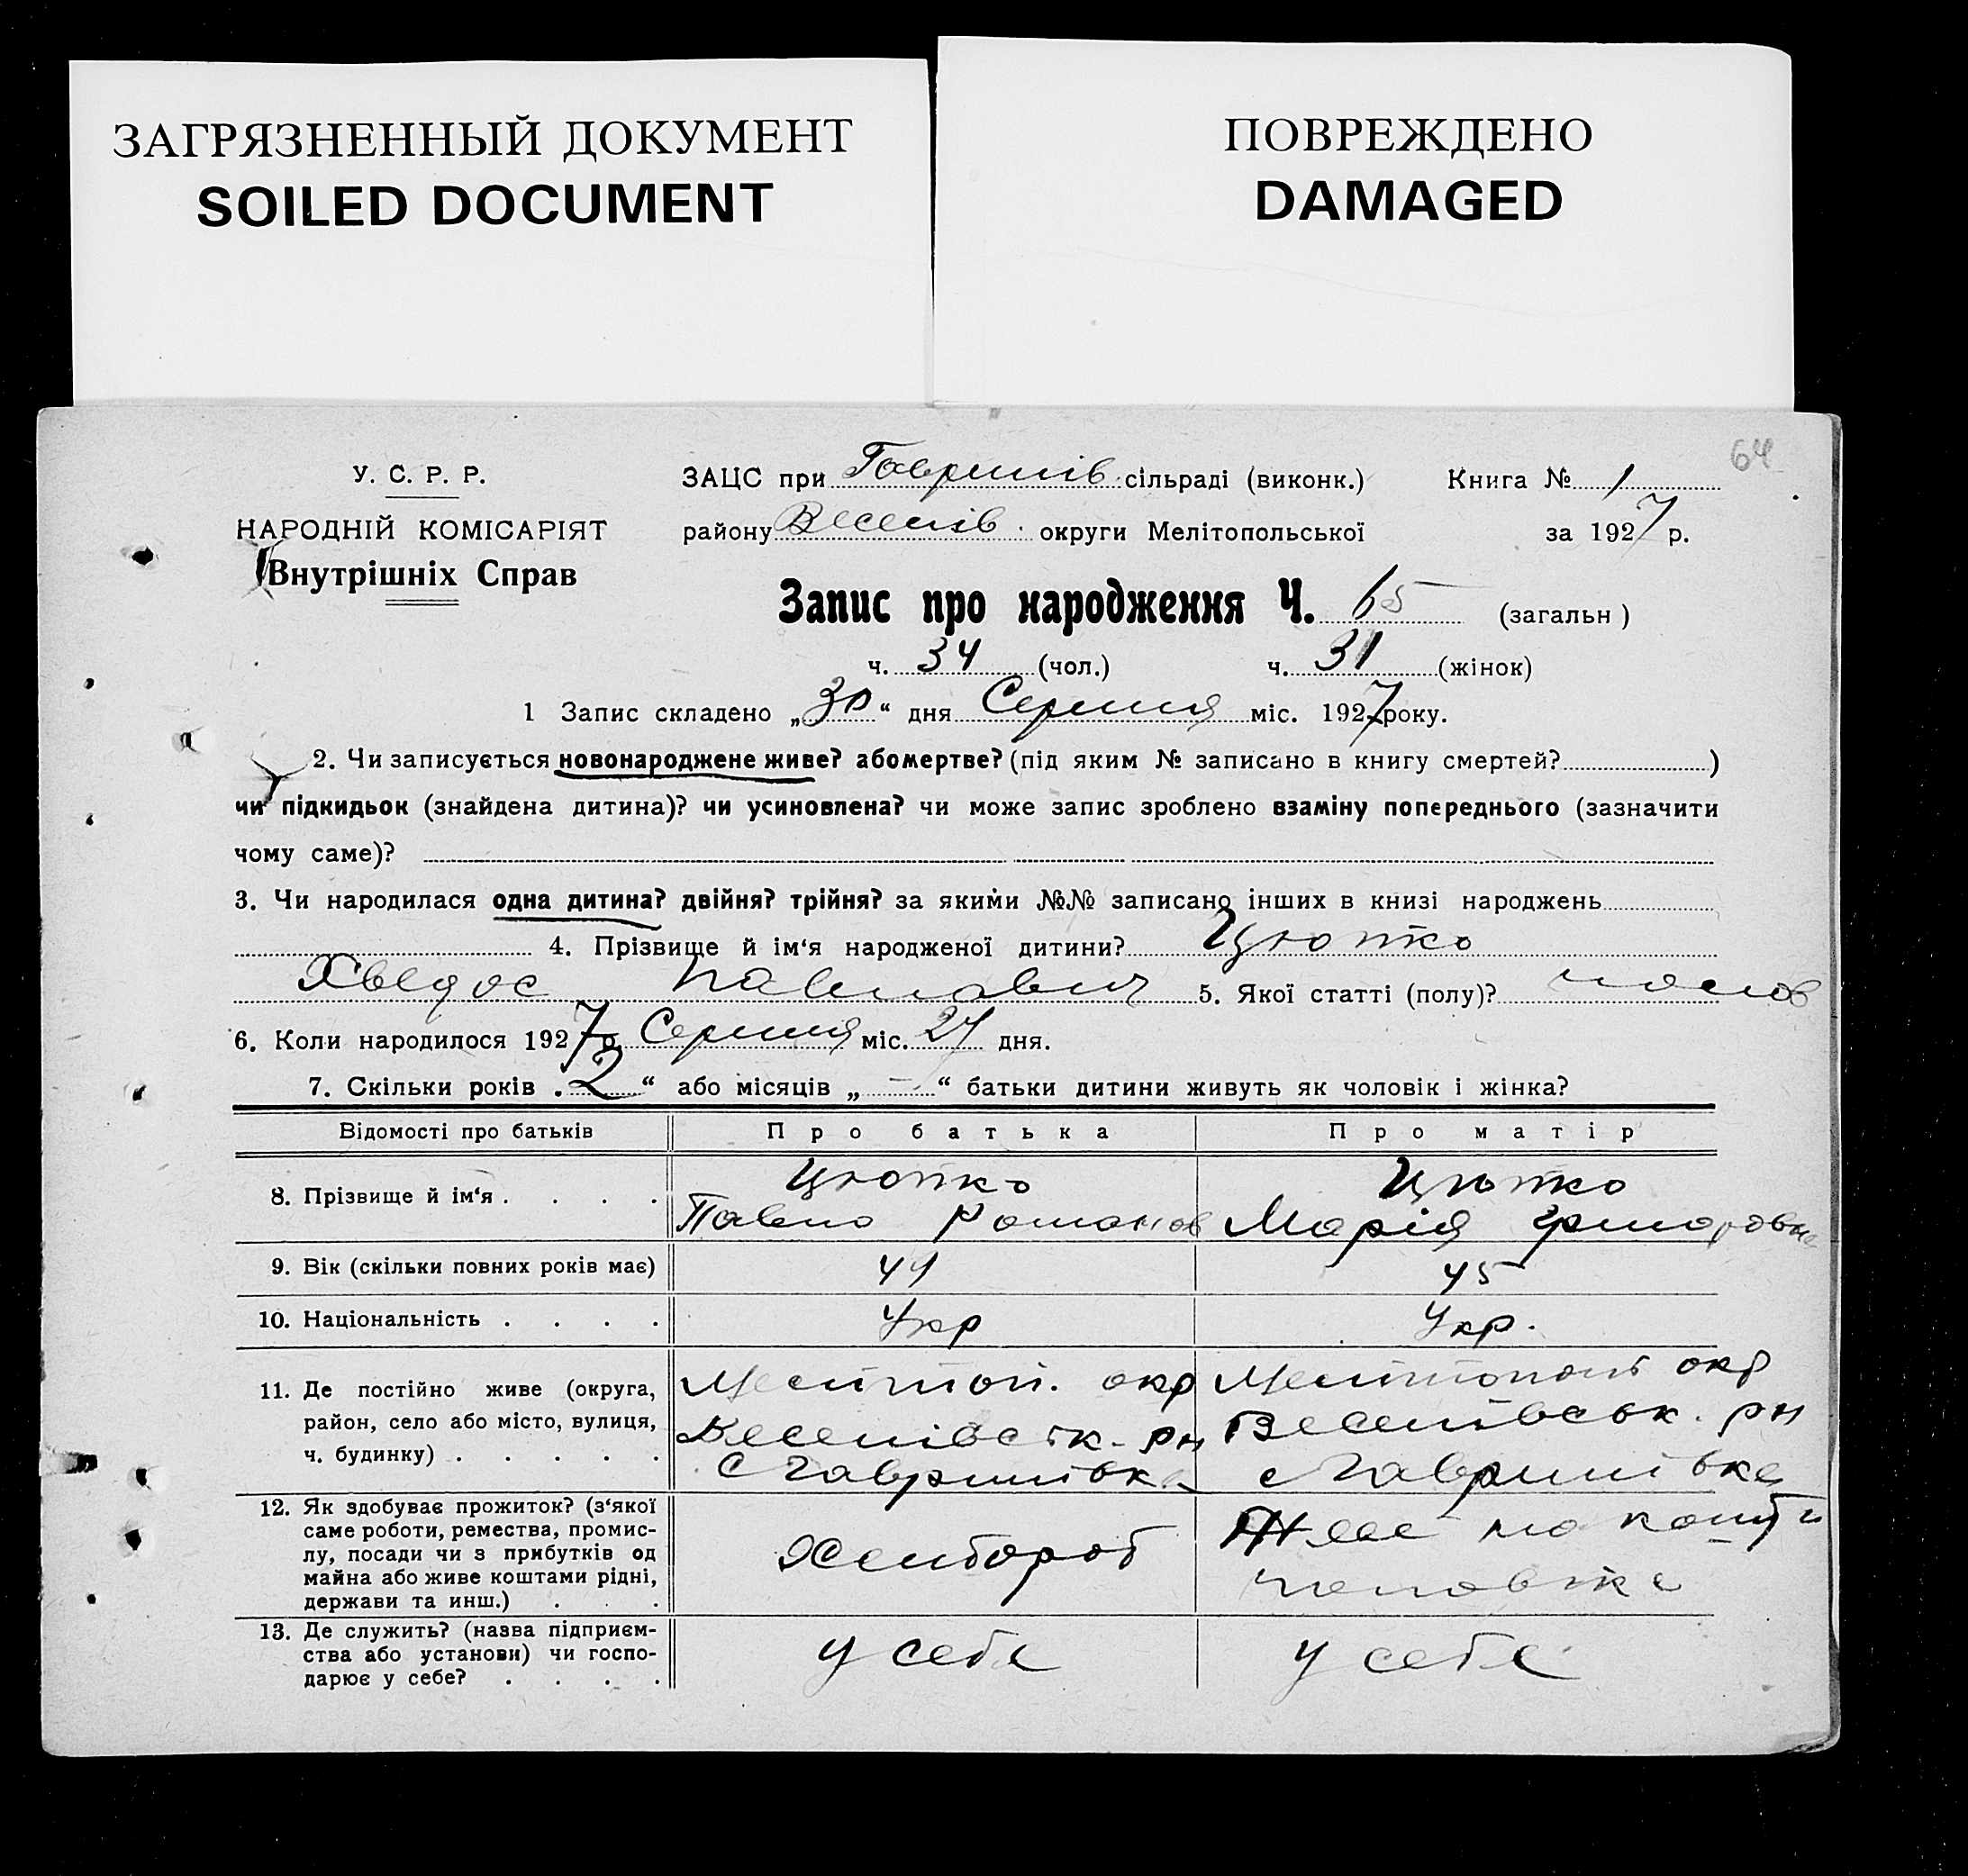 ЗАГРЯЗНЕННЫЙ ДОКУМЕНТ
SOILED DOCUMENT
ПОВРЕЖДЕНО
DAMAGED
64
У. С. Р. Р.
НАРОДНІЙ КОМІСАРІЯТ
Внутрішніх Справ
ЗАЦС при Гаврилів. сільраді (виконк.) Книга № 1
району Веселів. округи Мелітопольської за 1927 р.
Запис про народження Ч. 65 (загальн)
ч. 34 (чол.) ч. 31 (жінок)
1 Запис складено „30“ дня Серпня міс. 1927 року.
2. Чи записується новонароджене живе? або мертве? (під яким № записано в книгу смертей? )
чи підкидьок (знайдена дитина)? чи усиновлена? чи може запис зроблено взаміну попереднього (зазначити
чому саме)?
3. Чи народилася одна дитина? двійня? трійня? за якими №№ записано інших в книзі народжень
4. Прізвище й ім‘я народженої дитини? Цюпко
Хведос Павлович 5. Якої статті (полу)? чолов
6. Коли народилося 1927 р. Серпня міс. 27 дня.
7. Скільки років „2“ або місяців „—“ батьки дитини живуть як чоловік і жінка?
Відомості про батьків Про батька Про матір
8. Прізвище й ім‘я . . . . Цюпко Цюпко
Павло Романов Марія Григоровна
9. Вік (скільки повних років має) 49 45
10. Національність . . . . Укр Укр.
11. Де постійно живе (округа, Меліттоп. окр Меліттопольт окр
район, село або місто, вулиця, Веселівськ. рн Веселівськ. рн
ч. будинку) . . . . . с Гаврилівка с Гаврилівка
12. Як здобуває прожиток? (з‘якої
саме роботи, ремества, промис-
лу, посади чи з прибутків од
майна або живе коштами рідні,
держави та инш.) . . .
Хлібороб
Живе на кошти
чоловіка
13. Де служить? (назва підприєм-
ства або установи) чи госпо-
дарює у себе? . . . .
у себе у себе